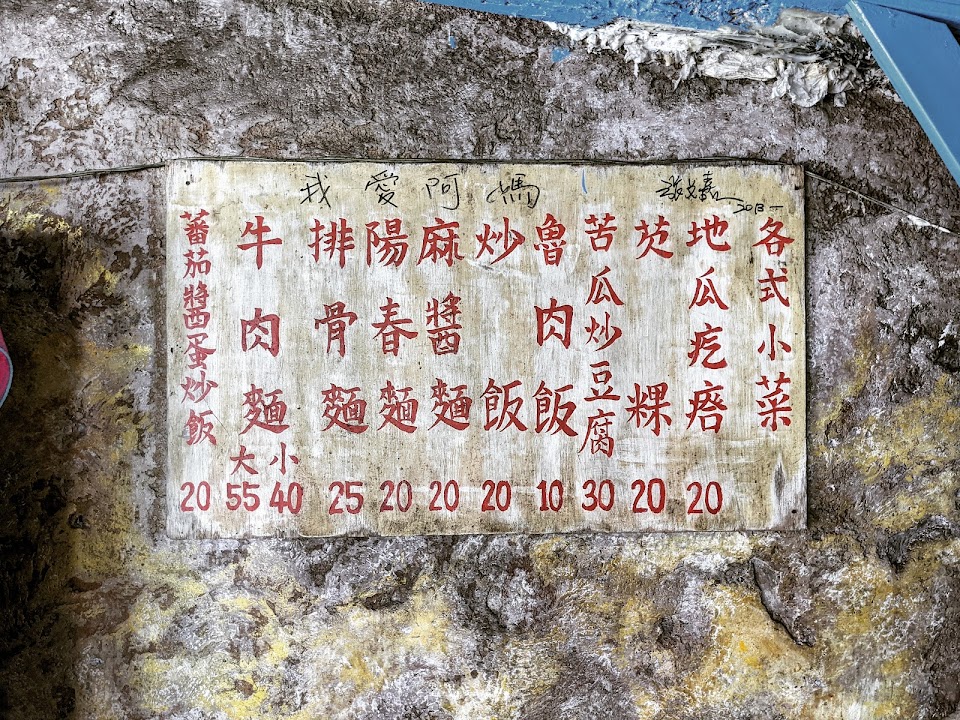 我愛阿媽
各式小菜
地瓜疙瘩 20
芡粿 20
苦瓜炒豆腐 30
魯肉飯 10
炒飯 20
麻醬麵 20
陽春麵 20
排骨麵 25
牛肉麵 大55 小40
蕃茄醬蛋炒飯 20